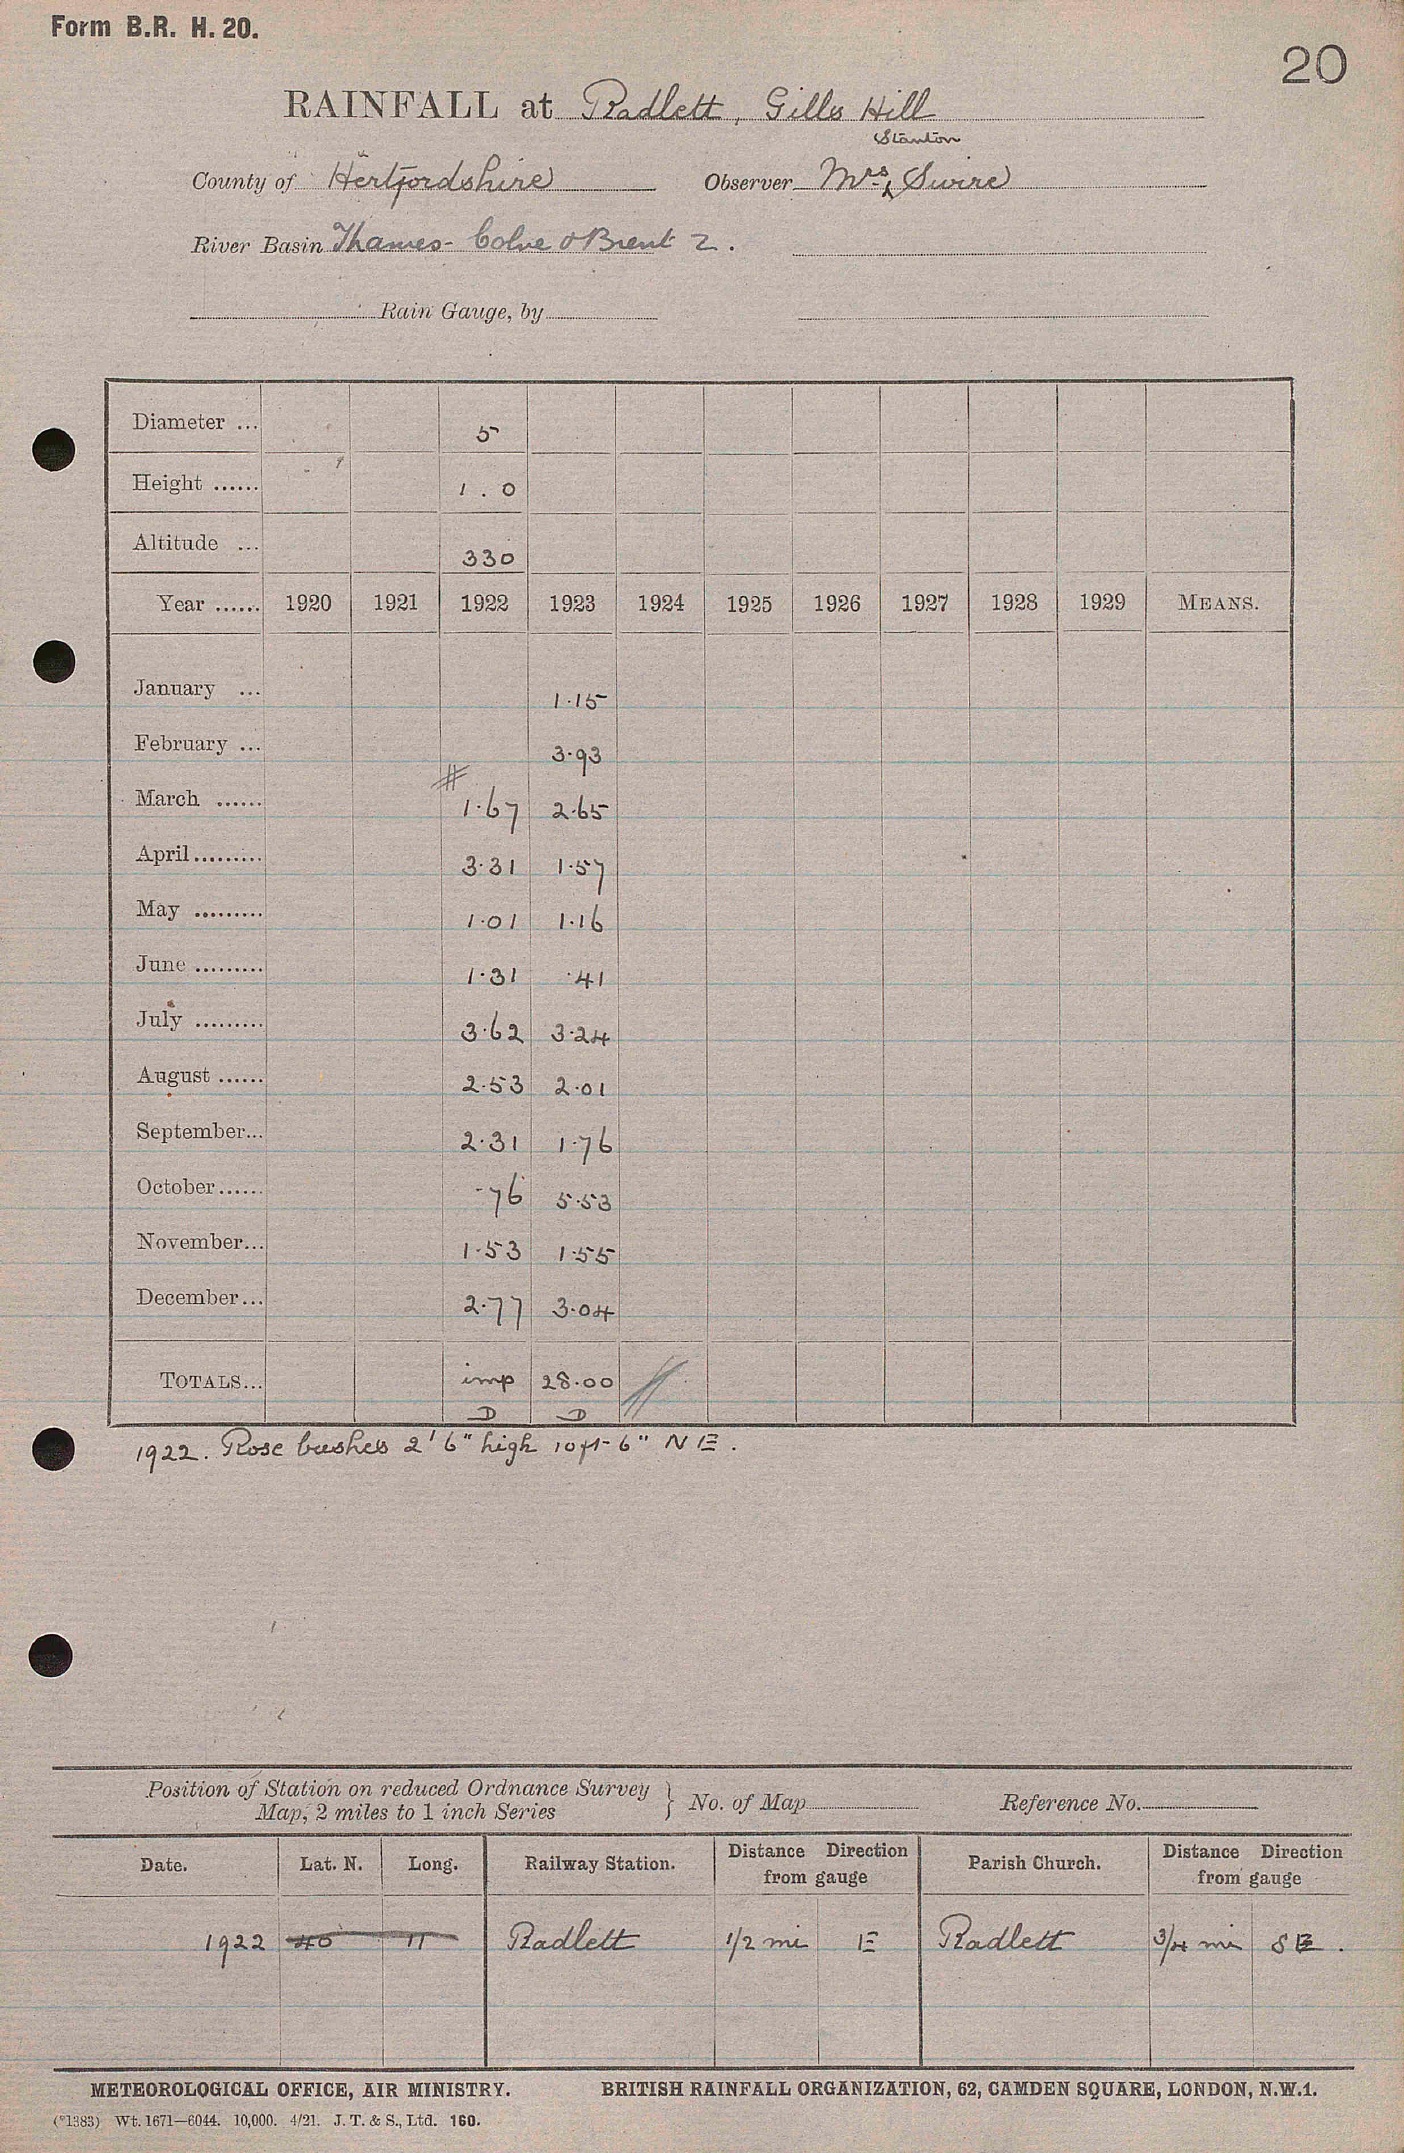 Form B.R. H. 20.
20
RAINFALL at Radlett, Gills Hill
Stanton
County of Hertfordshire Observer Mrs Swire
River Basin Thames - Colne & Brent 2.
Rain Gauge, by
Diameter ... 5
Height ...... 1 . 0
Altitude ... 330
Year ...... 1920 1921 1922 1923 1924 1925 1926 1927 1928 1929 MEANS.
January ... 1.15
February ... 3.93
March ...... 1.67 2.65
April ......... 3.31 1.57
May ......... 1.01 1.16
June ......... 1.31 .41
July ......... 3.62 3.24
August ...... 2.53 2.01
September... 2.31 1.76
October...... .76 5.53
November... 1.53 1.55
December... 2.77 3.04
TOTALS... imp 28.00
D D
1922. Rose bushes 2' 6" high 10ft- 6" N E.
Position of Station on reduced Ordnance Survey
Map, 2 miles to 1 inch Series } No. of Map Reference No.
Date. Lat. N. Long. Railway Station. Distance Direction from gauge Parish Church. Distance Direction from gauge
1922 40 11 Radlett 1/2 mi E Radlett 3/4 mi S E.
METEOROLOGICAL OFFICE, AIR MINISTRY. BRITISH RAINFALL ORGANIZATION, 62, CAMDEN SQUARE, LONDON, N.W.1.
(*1383) Wt. 1671—6044. 10,000. 4/21. J. T. & S., Ltd. 160.